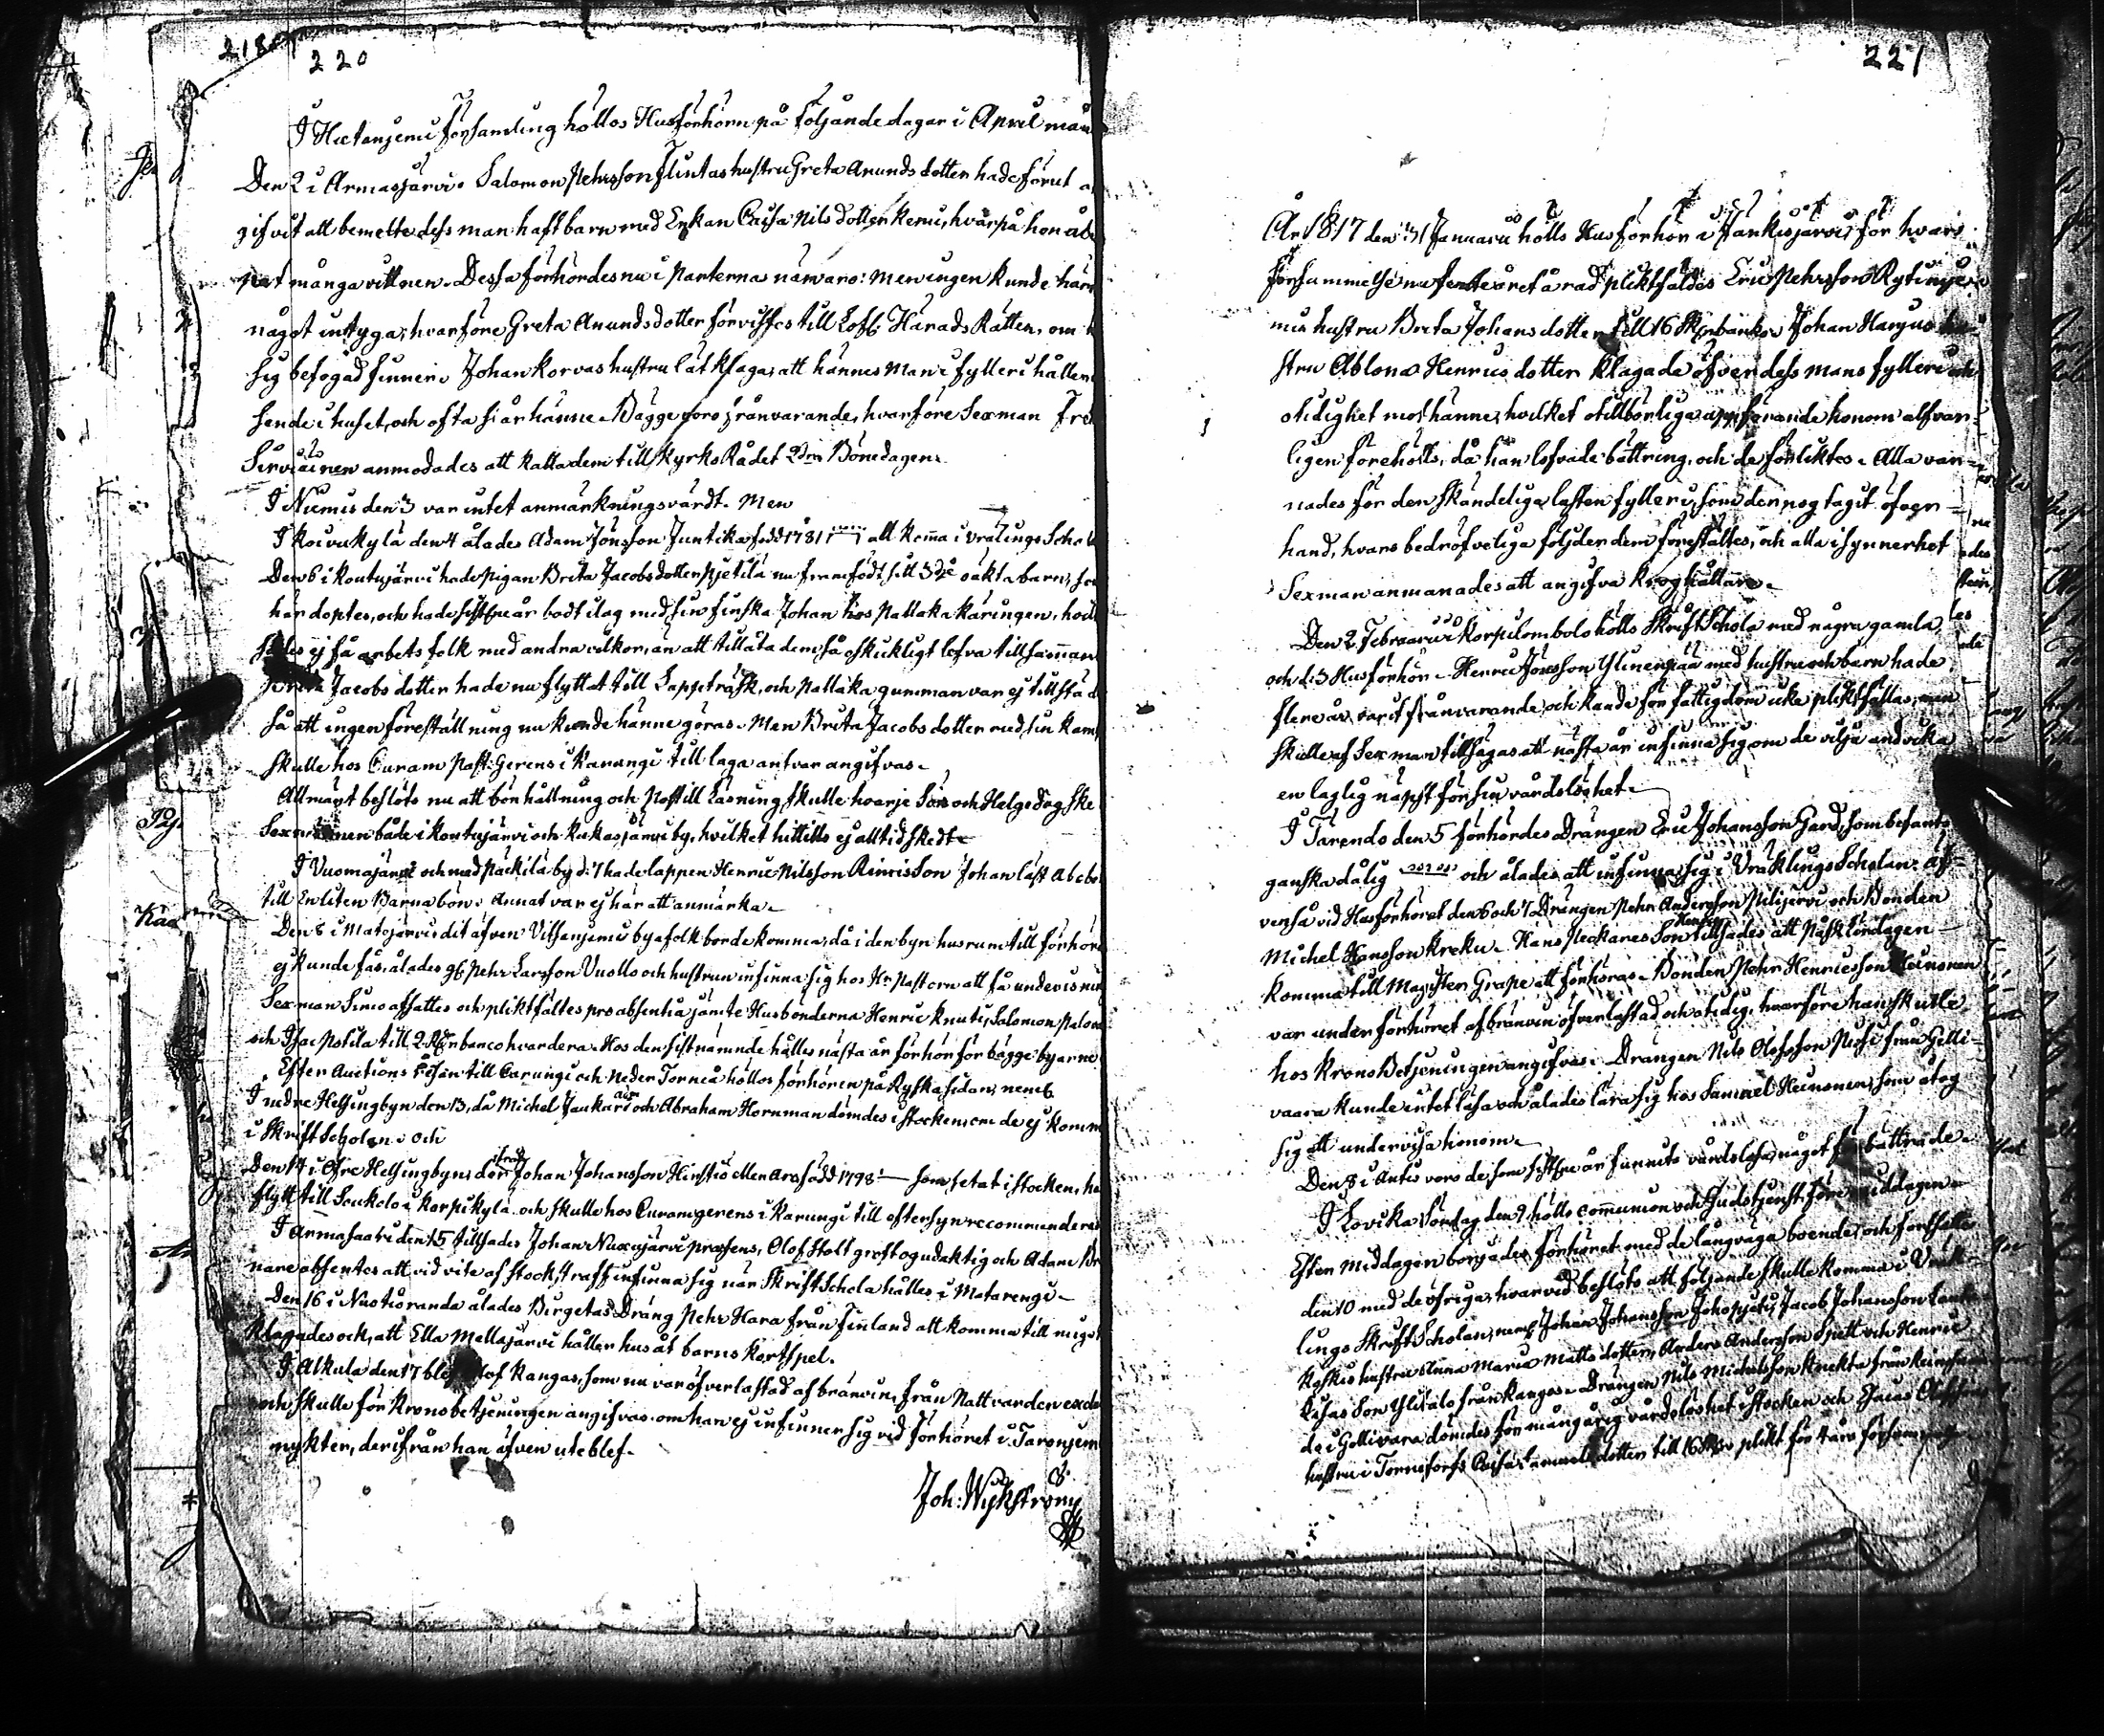 218
220
I Hietaniemi församling höllos Husförhörn på följande dagar i April mån
Den 2 i Armasjärvi. Salomon Pehrsson Flintas hustru Greta Anunds dotter hade förut
gifvit att bemelte dess man haft barn med Enkan Caisa Nils dotter Keru, hvarpå hon åbe
pat många vittnen. Dessa förhördes nu i parternas närvaro: men ingen kunde här
något intyga, hvarföre Greta Anundsdotter förvistes till Lofl. Härads Rätten, om
sig befogad finner. Johan Korvas hustru lät klaga, att hännes man i fylleri håller
sende i huset, och ofta slår hänne. Bägge voro frånvarande, hvarföre Sexman Fre
Sirviainen anmodades att kalla dem till Kyrko Rådet 2dra Bönedagen.
I Niemis den 3 var intet anmärkningsvärdt. Men
I Koivukylä den 4 ålades Adam Jönsson Juntika född 1781 att komma i Vrälings Schola
Den 6 i Koutujärvi hade pigan Brita Jacobsdotter Pjetilä nu framfödt sitt 3dje oäkta barn, som
här döptes, och hade sistne år bodt ilag med sin finska Johan hos Pallaka käringen, hvil
sades ej få arbets folk med andra vilkor, än att tillåta dem så oskickligt lefva tillsamman
Brita Jacobs dotter hade nu flyttat till Lappträsk, och Pallaka gumman var ej tillstäd
så att ingen föreställning nu kunde hänne göras. Men Brita Jacobs dotter med sin kam
skulle hos Curam Past: Gerens i Karungi till laga ansvar angifvas.
Allmänt beslöts nu att bönhållning och Postill Läsning skulle hvarje Sön och Helgedag ske
Sexmännen både i Koutujärvi och Kukasjärvi by, hvilket hittills ej alltid skedt.
I Vuomajärvi och med Päckilä by d: 7 hade lappen Henric Nilsson Rimis Son Johan läst Abcbo
till En liten Barnabön. Annat var ej här att anmärka.
Den 8 i Matojärvi dit äfven Vitsaniemi bya folk borde komma, då i den byn husrum till förhöre
ej kunde fås, ålades gl. Pehr Larsson Vuollo och hustrun infinna sig hos Hr Pastorn att få undervisnin
Sexman Simo afsattes och pliktfältes pro absentia jämte Husbönderna Henric Knuti, Salomon Palom
och Isac Pstila till 2 Rdr banco hvardera. Hos den sistnämnde hålles nästa år förhör för bägge byarne
Efter Auctions resan till Carungi och Neder Torneå höllos förhören på Ryska sidan, neml.
I nedre Helsingbyn den 13, då Michel Jankari och Abraham Hornman dömdes i stocken om de ej komm
i Skrift Scholan. Och
Den 14 i Öfre Helsingbyn, der Johan Johansson Hirstiö eller Ara född 1798 som setat i stocken, ha
flytt till Soukolo i Korpikylä och skulle hos Curam gerens i Karungi till eftersyn recommenderas
I Armasaari den 15 tillsades Johan Nuxujärvi præsens, Olof Stolt grof ogudaktig och Adam
nare absentes att vid vite af stock straff infinna sig när Skrift Schola hålles i Matarengi.
Den 16 i Nuotioranda ålades Birgetas Dräng Pehr Hara från Finland att komma till mig
Klagades ock, att Ella Mellajärvi håller hus åt barns kortspel.
I Alkula den 17 blef Olof Kangas, som nu var öfverlastad af bränvin, från Nattvarden exclu
och skulle för Kronobetjeningen angifvas om han ej infinner sig vid förhöret i Taroniem
nykter, derifrån han äfven uteblef.
Joh: Wijkström
221
År 1817 den 31 Januarii hölls Husförhör i Jänkisjärvi, för hvars
Försummelse nu femte året å rad pliktfäldes Eric Pehrsson Kytinje
mis hustru Brita Johans dotter till 16 sk banko. Johan Harjus hu
stru Ablona Henrics dotter klagade öfver dess mans fylleri och
otidighet mot hänne, hvilket otillbörliga uppförande honom alfvar
ligen föreholls, då han lofvade bättring, och de förliktes. Alla var
nades för den skändeliga lasten fylleri, som der nog tagit öfver
hand, hvars bedröfveliga följder dem föreställtes, och alla isynnerhet
Sexman anmanades att angifva krog hållare.
Den 2 Februarii i Korpilombolo hölls Skrift Schola med några gamla
och d. 3 Husförhör. Henric Jönsson Ylinenpää med hustru och barn hade
flere år varit frånvarande och kunde för fattigdom icke pliktfällas, men
skulle af Sexman tillsägas att nästa år infinna sig om de vilja undvika
en laglig näpst för sin vårdslöshet.
I Tärendö den 5 förhördes Drängen Eric Johansson Gard, som befants
ganska dålig och ålades att infinna sig i Vräklings Scholan. äf
venså vid Husförhöret den 6 och 7 Drängen Pehr Andersson Pilijärvi och Bonden
Michel Hansson Kreku. Hans Peckares Son Henric tillsades att Påsk Lördagen
komma till Magister Grape att förhöras. Bonden Pehr Henricsson Heinonen
var under förhöret af bränvin öfverlastad och otidig, hvarföre han skulle
hos Krono Betjeningen angifvas. Drängen Nils Olofsson Pusi från Gelli
vaara kunde intet läsa och ålades lära sig hos Samuel Heinonen, som åtog
sig att undervisa honom.
Den 8 i Antis voro de, som sistne år funnits vårdslösa, något förbättrade.
I Lovika Söndag den 9 hölls communion och Gudstjenst före middagen.
Efter middagen börjades förhöret med de långväga boende, och fortsattes
den 10 med de öfriga, hvarvid beslöts att följande skulle komma i Vräk
lings Skrift Scholan, neml: Johan Johansson Johopjeti, Jacob Johansson
Kyskis hustru Anna Maria Matts dotter, Anders Andersson Spett och Henric
Kajsas Son Ylitalo från Kangos. Drängen Nils Michelsson Knekta från
de i Gellivara dömdes för mångårig vårdslöshet i stocken och Esaias Olofsson
hustru i Tornefors Caisa Samuels dotter till 16 sk plikt för 4 års försummelse